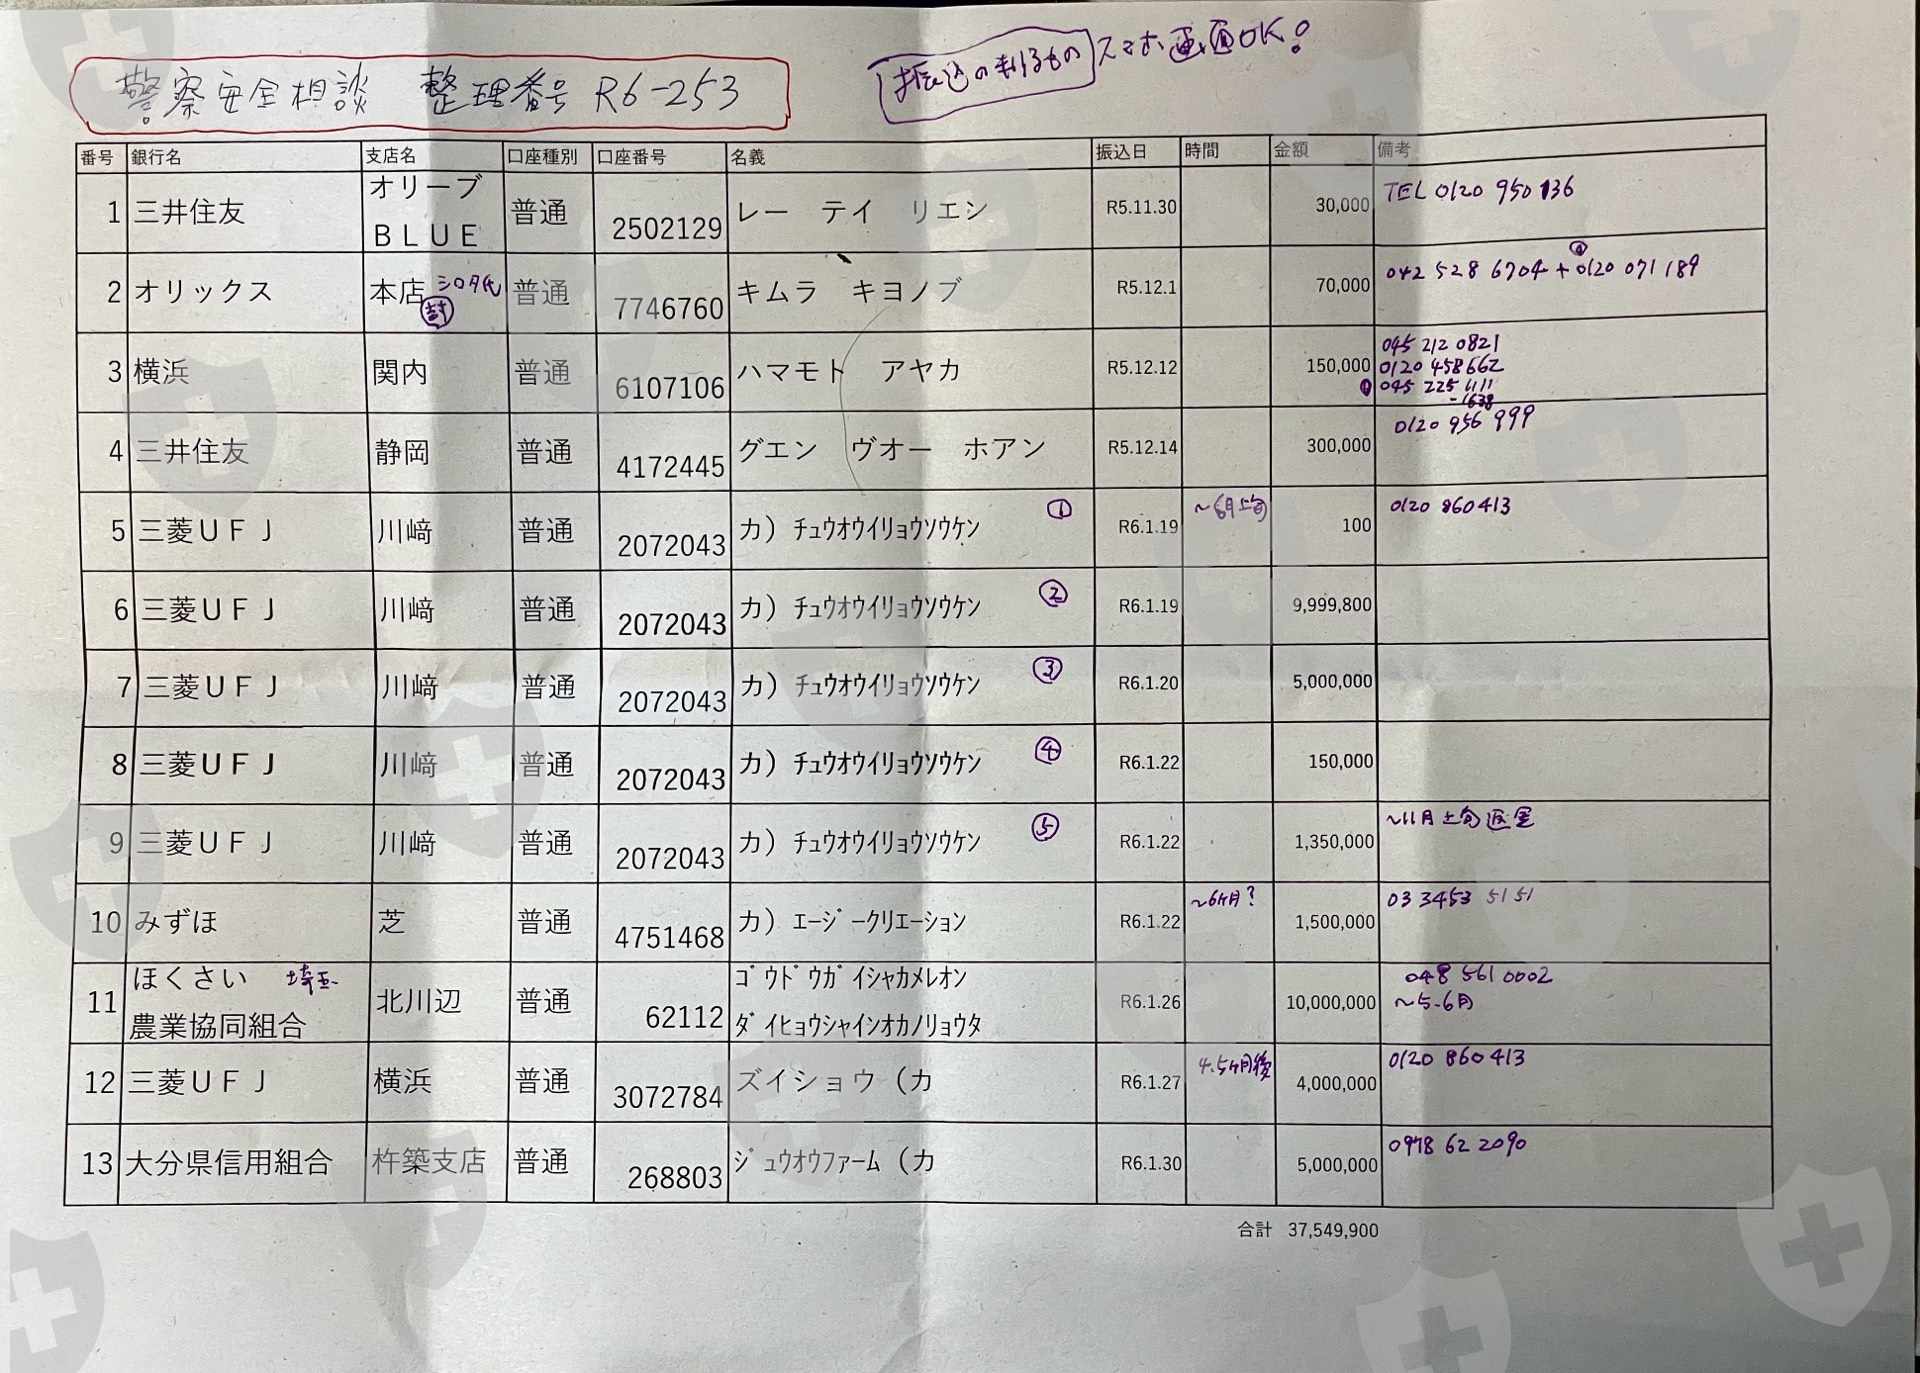 警察安全相談 整理番号 R6-253
振込の判るもの スマホ画面OK!
番号 銀行名 支店名 口座種別 口座番号 名義 振込日 時間 金額 備考
1 三井住友 オリーブ BLUE 普通 2502129 レー テイ リエン R5.11.30 30,000 TEL 0120 950 136
2 オリックス 本店 シロタ氏 普通 7746760 キムラ キヨノブ R5.12.1 70,000 042 528 6704 + 0120 071 189
3 横浜 関内 普通 6107106 ハマモト アヤカ R5.12.12 150,000 045 212 0821
0120 458662
045 225 1111
-1638
4 三井住友 静岡 普通 4172445 グエン ヴオー ホアン R5.12.14 300,000 0120 956 999
5 三菱UFJ 川﨑 普通 2072043 カ）チュウオウイリョウソウケン ① R6.1.19 ~6月上旬 100 0120 860413
6 三菱UFJ 川﨑 普通 2072043 カ）チュウオウイリョウソウケン ② R6.1.19 9,999,800
7 三菱UFJ 川﨑 普通 2072043 カ）チュウオウイリョウソウケン ③ R6.1.20 5,000,000
8 三菱UFJ 川﨑 普通 2072043 カ）チュウオウイリョウソウケン ④ R6.1.22 150,000
9 三菱UFJ 川﨑 普通 2072043 カ）チュウオウイリョウソウケン ⑤ R6.1.22 1,350,000 ~11月上旬返金
10 みずほ 芝 普通 4751468 カ）エージークリエーション R6.1.22 ~6ヶ月? 1,500,000 03 3453 5151
11 ほくさい 埼玉 農業協同組合 北川辺 普通 62112 ゴウドウガイシャカメレオン ダイヒョウシャインオカノリョウタ R6.1.26 10,000,000 048 561 0002
~5-6月
12 三菱UFJ 横浜 普通 3072784 ズイショウ（カ R6.1.27 4.5ヶ月後 4,000,000 0120 860 413
13 大分県信用組合 杵築支店 普通 268803 ジュウオウファーム（カ R6.1.30 5,000,000 0978 62 2090
合計 37,549,900